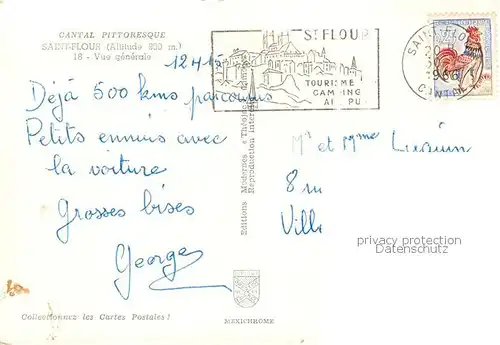 CANTAL PITTORESQUE
SAINT-FLOUR (Altitude 930 m.)
18 - Vue générale
Déjà 500 kms parcourus
Petits ennuis avec
la voiture
Grosses bises
Georges
Editions Modernes « Théojac »
Reproduction interdite
ST FLOUR
TOURISME
CAMPING
SAINT-FLOUR
CANTAL
Mr et Mme
8 rue
Ville
privacy protection
Datenschutz
Collectionnez les Cartes Postales !
MEXICHROME